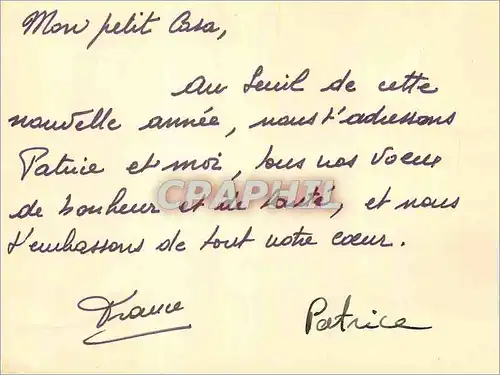 Mon petit Casa,
Au Seuil de cette
nouvelle année, nous t'adressons
Patrice et moi, tous nos voeux
de bonheur et de santé, et nous
CRAPHIL
t'embrassons de tout notre coeur.
France
Patrice